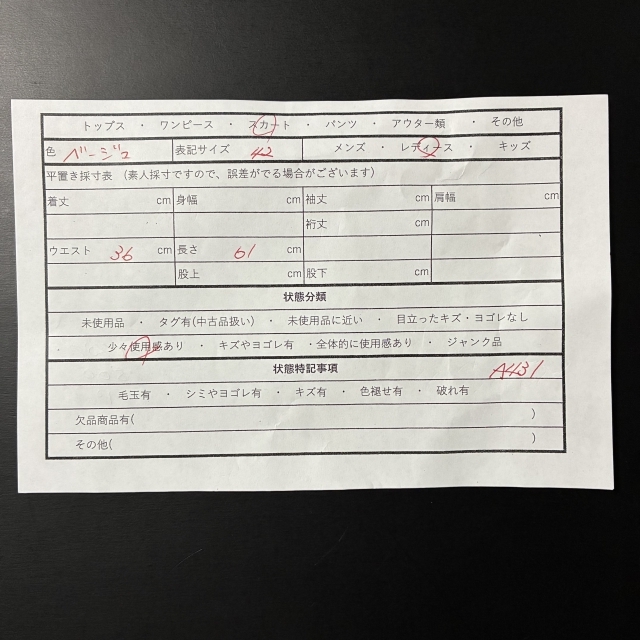 トップス ・ ワンピース ・ スカート ・ パンツ ・ アウター類 ・ その他
色 ベージュ 表記サイズ 42 メンズ ・ レディース ・ キッズ
平置き採寸表 (素人採寸ですので、誤差がでる場合がございます)
着丈 cm 身幅 cm 袖丈 cm 肩幅 cm
裄丈 cm
ウエスト 36 cm 長さ 61 cm
股上 cm 股下 cm
状態分類
未使用品 ・ タグ有(中古品扱い) ・ 未使用品に近い ・ 目立ったキズ・ヨゴレなし
・ 少々使用感あり ・ キズやヨゴレ有 ・全体的に使用感あり ・ ジャンク品
状態特記事項 A431
毛玉有 ・ シミやヨゴレ有 ・ キズ有 ・ 色褪せ有 ・ 破れ有
欠品商品有( )
その他( )